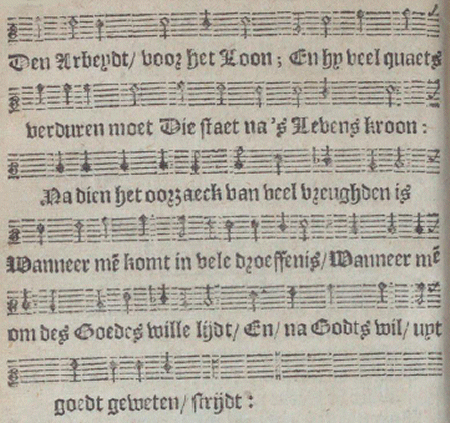 Den Arbeydt/ voor het Loon; En hy veel quaets
verduren moet Die staet na's Levens kroon:
Na dien het oorzaeck van veel vreughden is
Wanneer mẽ komt in vele droeffenis/ Wanneer mẽ
om des Goedes wille lijdt/ En/ na Godts wil/ uyt
goedt geweten/ strijdt: